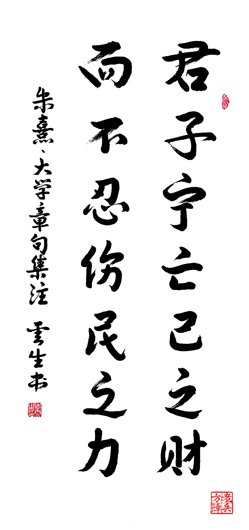 君子宁亡己之财
而不忍伤民之力
朱熹、大学章句集注 云生书